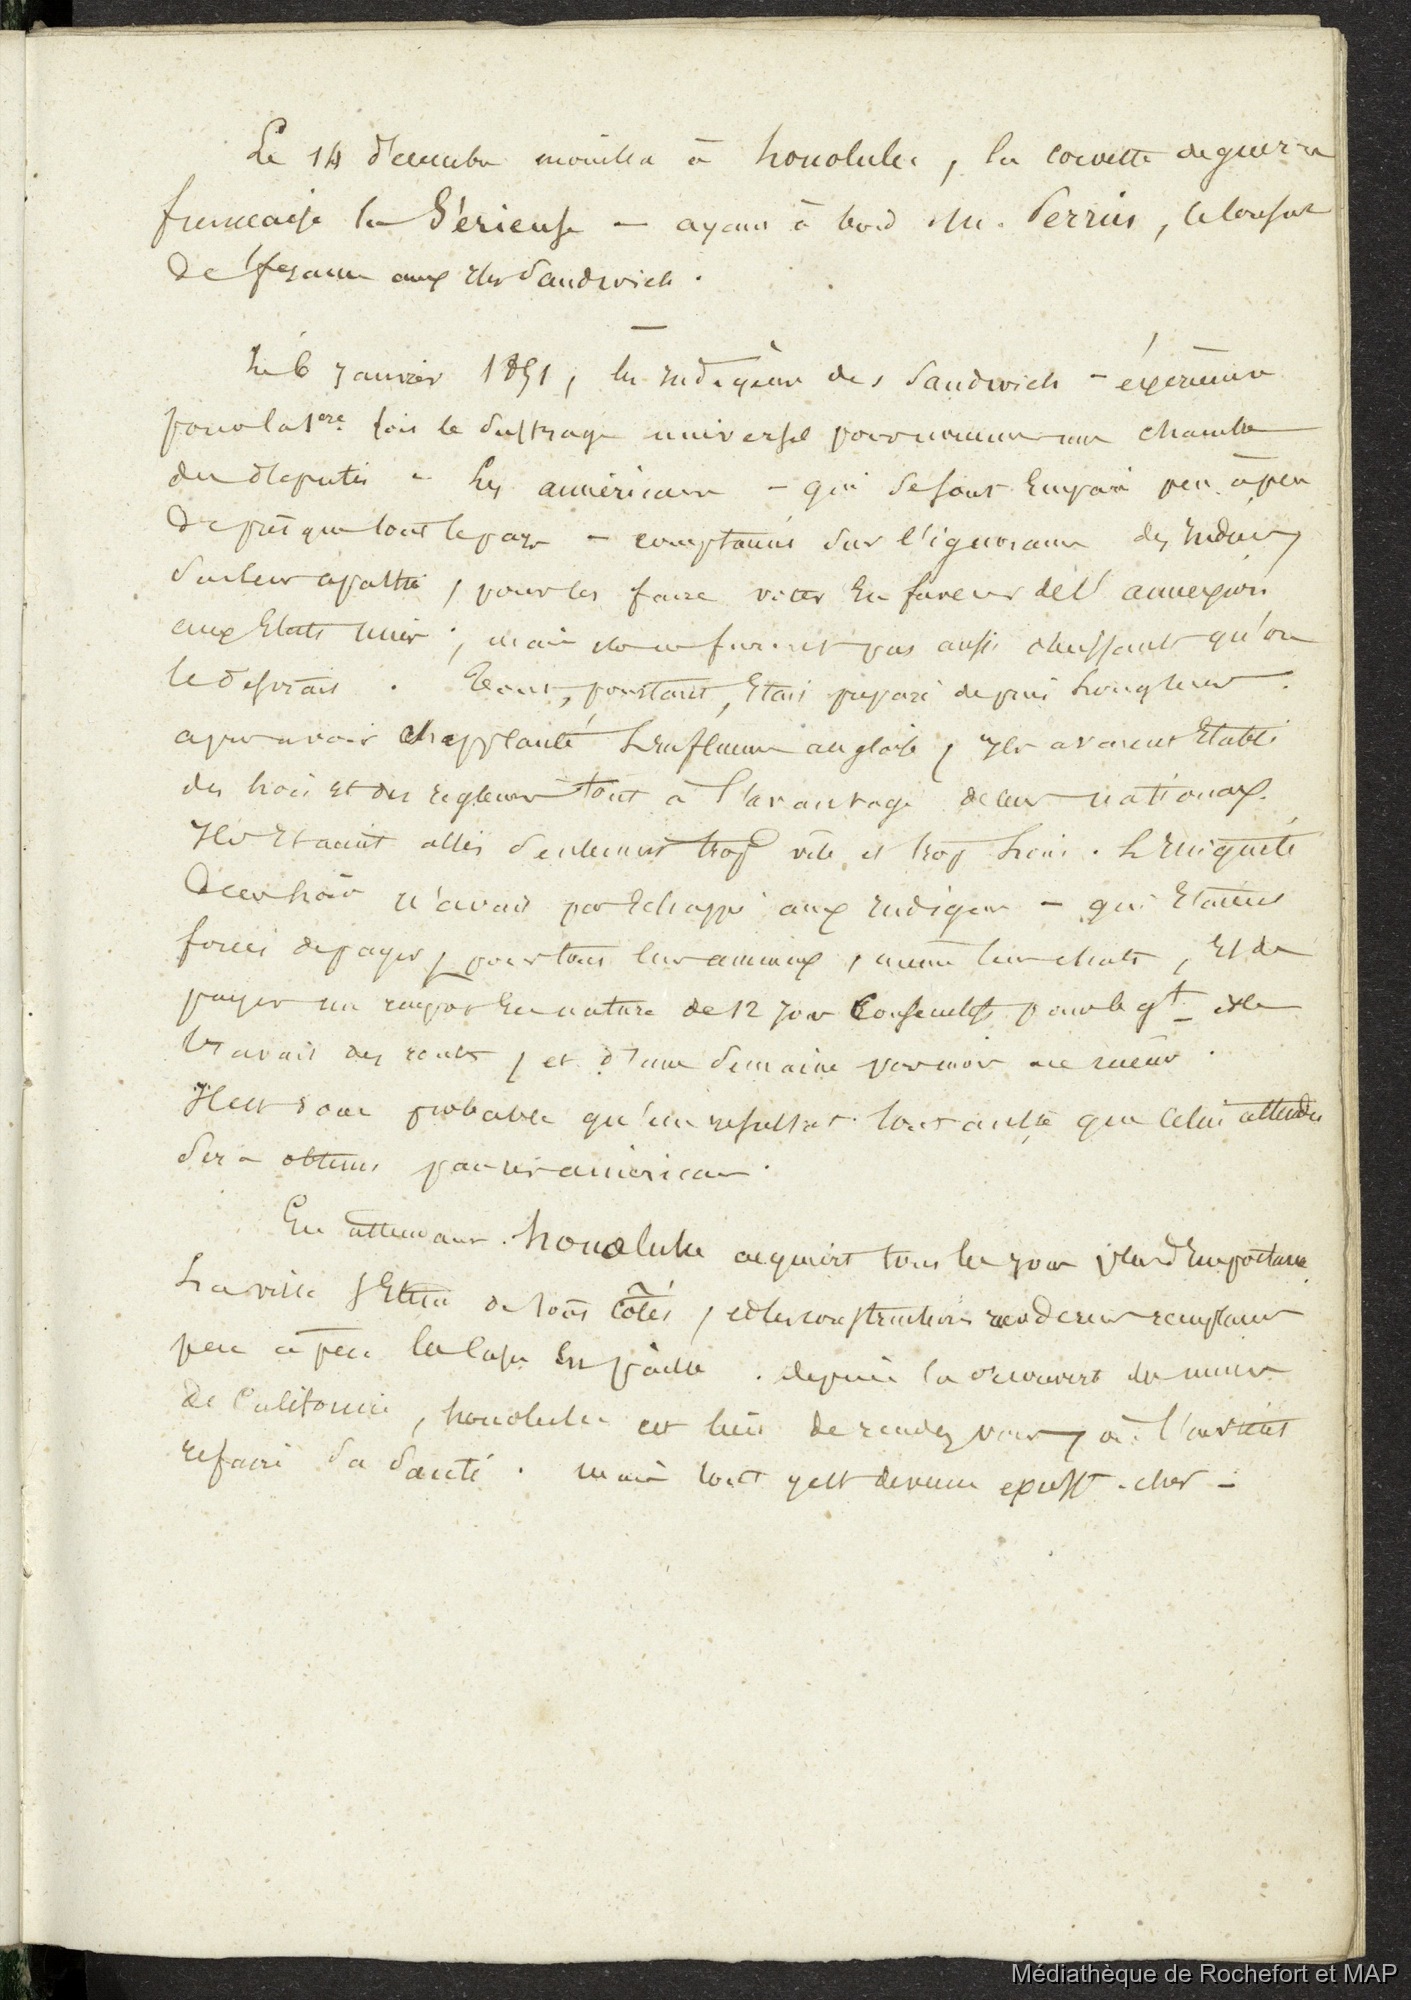 Le 14 décembre mouilla à honolulu, la corvette de guerre
francaise la Sérieuse — ayant à bord M. Perrin, le Consul
De france aux Iles Sandwich.
—
Le 6 Janvier 1851, les Indigènes des Sandwich — éxercèrent
pour la 1ere fois le Suffrage universel pour nommer une chambre
des députés — Les américains — qui se sont Emparé peu à peu
De presque tout le pays — comptaient Sur l'ignorance des Indiens,
Sur leur apathie, pour les faire voter En faveur de l'annexion
aux Etats Unis ; mais ils ne furent pas aussi obeissants qu'on
le desirait. Tout, pourtant, Etait préparé depuis Longtems.
apres avoir supplanté L'Influence anglaise, Ils avaient Etabli
des Lois et des reglemens tout à l'avantage de leurs nationaux.
Ils Etaient allés Seulement trop vite et trop Loin. L'Iniquité
De ces Lois n'avait pas Echappé aux Indigènes — qui Etaient
forcés de payer, pour tous leurs animaux, même leurs chats, Et de
payer un impot En nature de 12 jours Consecutifs pour le gt et le
travail des routes, et d'une Semaine par mois
Il est donc probable qu'un resultat tout autre que Celui attendu
Sera obtenu par les américains.
En attendant. honolulu acquiert tous les jours plus d'Importance
La ville S'Etend de tous Côtés, et les constructions modernes remplacent
peu à peu les cases En paille. depuis la découverte des mines
De Californie, honolulu est lieu de rendez vous, où l'on vient
refaire Sa Santé. mais tout y est devenu excessivt. cher —
Médiathèque de Rochefort et MAP